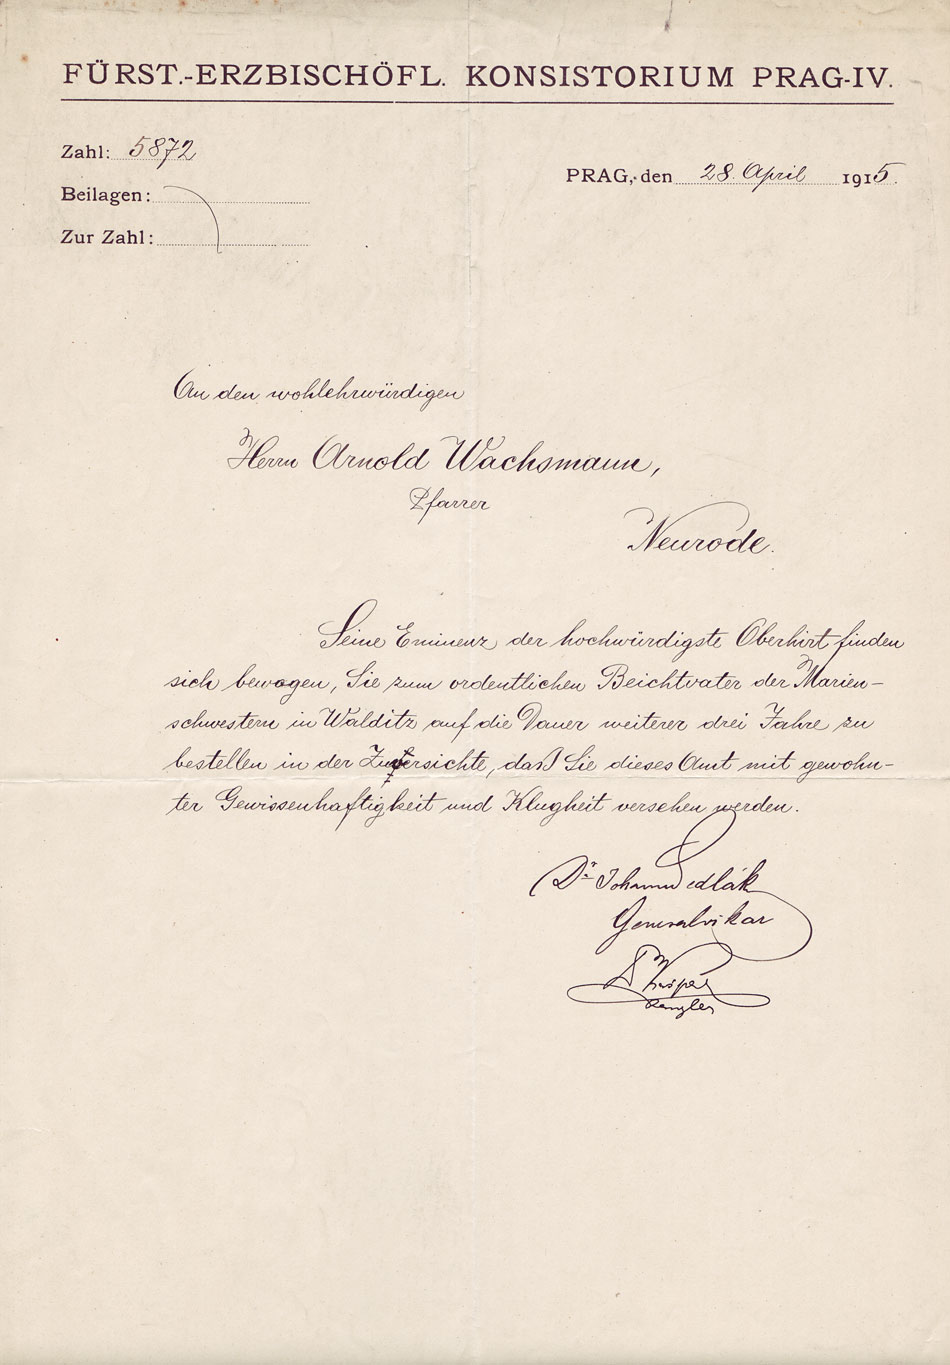 FÜRST.-ERZBISCHÖFL. KONSISTORIUM PRAG-IV.
Zahl: 5872
PRAG, den 28. April 1915.
Beilagen:
Zur Zahl:
An den wohlehrwürdigen
Herrn Arnold Wachsmann,
Pfarrer
Neurode.
Seine Eminenz der hochwürdigste Oberhirt finden
sich bewogen, Sie zum ordentlichen Beichtvater der Marien-
schwestern in Walditz auf die Dauer weiterer drei Jahre zu
bestellen in der Zuversichte, daß Sie dieses Amt mit gewohn-
ter Gewissenhaftigkeit und Klugheit versehen werden.
Dr. Johann Sedlák
Generalvikar
Kanzler